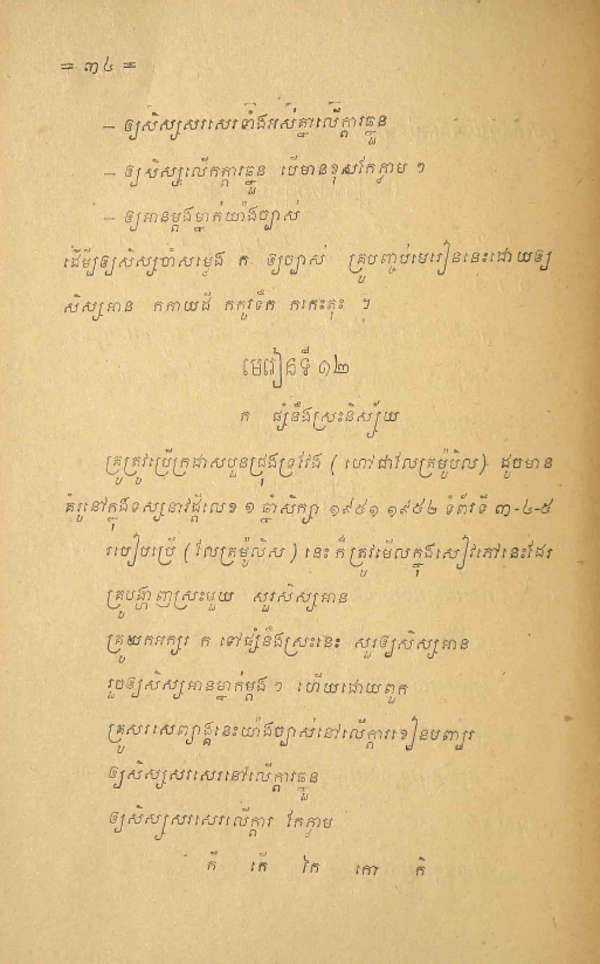 = ៣៤ =
– ឲ្យសិស្សសរសេរទាំងអស់គ្នាលើក្ដារឆ្នួន
– ឲ្យសិស្សលើកក្ដារឆ្នួន បើមានខុសកែភ្លាម ៗ
– ឲ្យអានម្ដងម្នាក់យ៉ាងច្បាស់
ដើម្បីឲ្យសិស្សចាំសម្លេង ក ឲ្យច្បាស់ គ្រូបញ្ចប់មេរៀននេះដោយឲ្យ
សិស្សអាន កកាយដី កកូរទឹក កកេះតុះ ។
មេរៀនទី ១២
ក ផ្សំនឹងស្រះនិស្ស័យ
គ្រូត្រូវប្រើក្រដាសបួនជ្រុងទ្រវែង ( ហៅថាលែត្រម៉ូបិល) ដូចមាន
គំរូនៅក្នុងទស្សនាវដ្ដីលេខ ១ ឆ្នាំសិក្សា ១៩៥១ ១៩៥២ ទំព័រទី ៣-៤-៥
របៀបប្រើ ( លែត្រម៉ូលិស ) នេះ ក៏ត្រូវមើលក្នុងសៀវភៅនេះដែរ
គ្រូបង្ហាញស្រះមួយ សួរសិស្សអាន
គ្រូយកអក្សរ ក ទៅផ្សំនឹងស្រះនេះ សួរឲ្យសិស្សអាន
រួចឲ្យសិស្សអានម្នាក់ម្ដង ៗ ហើយដោយពួក
គ្រូសរសេព្យាង្គនេះយ៉ាងច្បាស់នៅលើក្ដារខៀនបញ្ឈរ
ឲ្យសិស្សសរសេរនៅលើក្ដារឆ្នួន
ឲ្យសិស្សសរសេរលើក្ដារ កែភ្លាម
កី កើ កែ កោ កិ